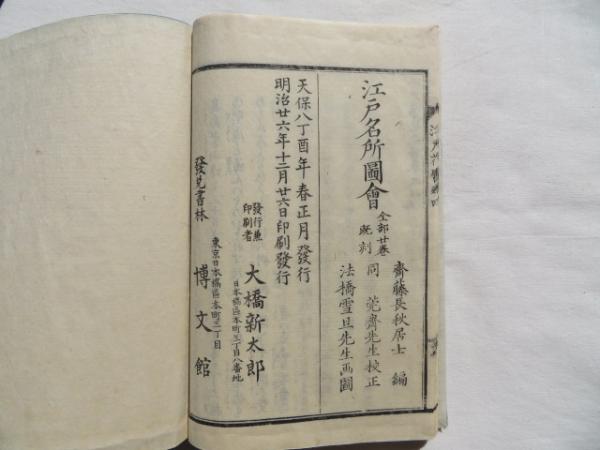 齋藤長秋居士 編
同 莞齋先生校正
法橋雪旦先生画圖
江戸名所圖會
全部廿巻
既刻
天保八丁酉年春正月發行
明治廿六年十二月廿六日印刷發行
發行兼
印刷者
大橋新太郎
日本橋區本町三丁目八番地
發兌書林
東京日本橋區本町三丁目
博文館